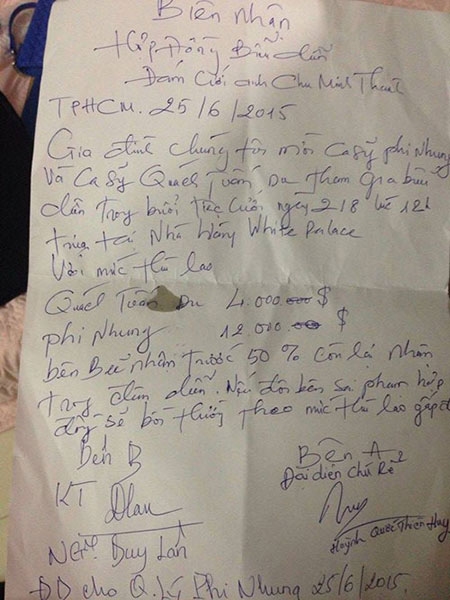 Biên nhận
Hợp Đồng Biểu diễn
Đám Cưới anh Chu Minh
TPHCM. 25/6/2015
Gia đình chúng tôi mời Ca sỹ phi Nhung
Và Ca sỹ Quách Tuấn Du tham gia biểu
diễn trong buổi tiệc cưới ngày 2/8 lúc 12h
trưa tại Nhà Hàng White Palace
Với mức thù lao
Quách Tuấn Du 4.000 $
phi Nhung 12 000 $
bên B nhận trước 50% còn lại nhận
trong đêm diễn. Nếu đôi bên sai phạm hợp
đồng sẽ bồi thường theo mức thù lao gấp
Bên B
Bên A
Đại diện Chú Rể
KT
Huỳnh Quốc Thiên Huy
Duy Lân
ĐD cho Q.Lý Phi Nhung 25/6/2015.